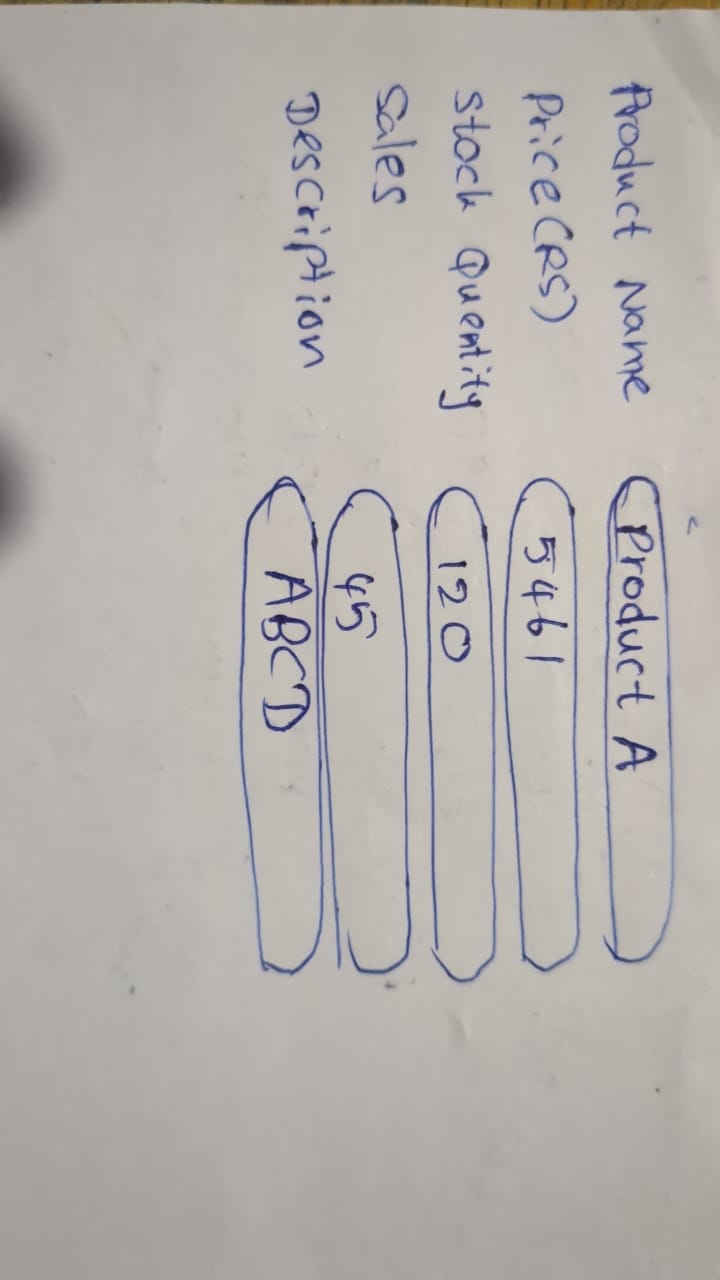 Product Name Product A
Price(RS) 5461
Stock Quentity 120
Sales 45
Description ABCD